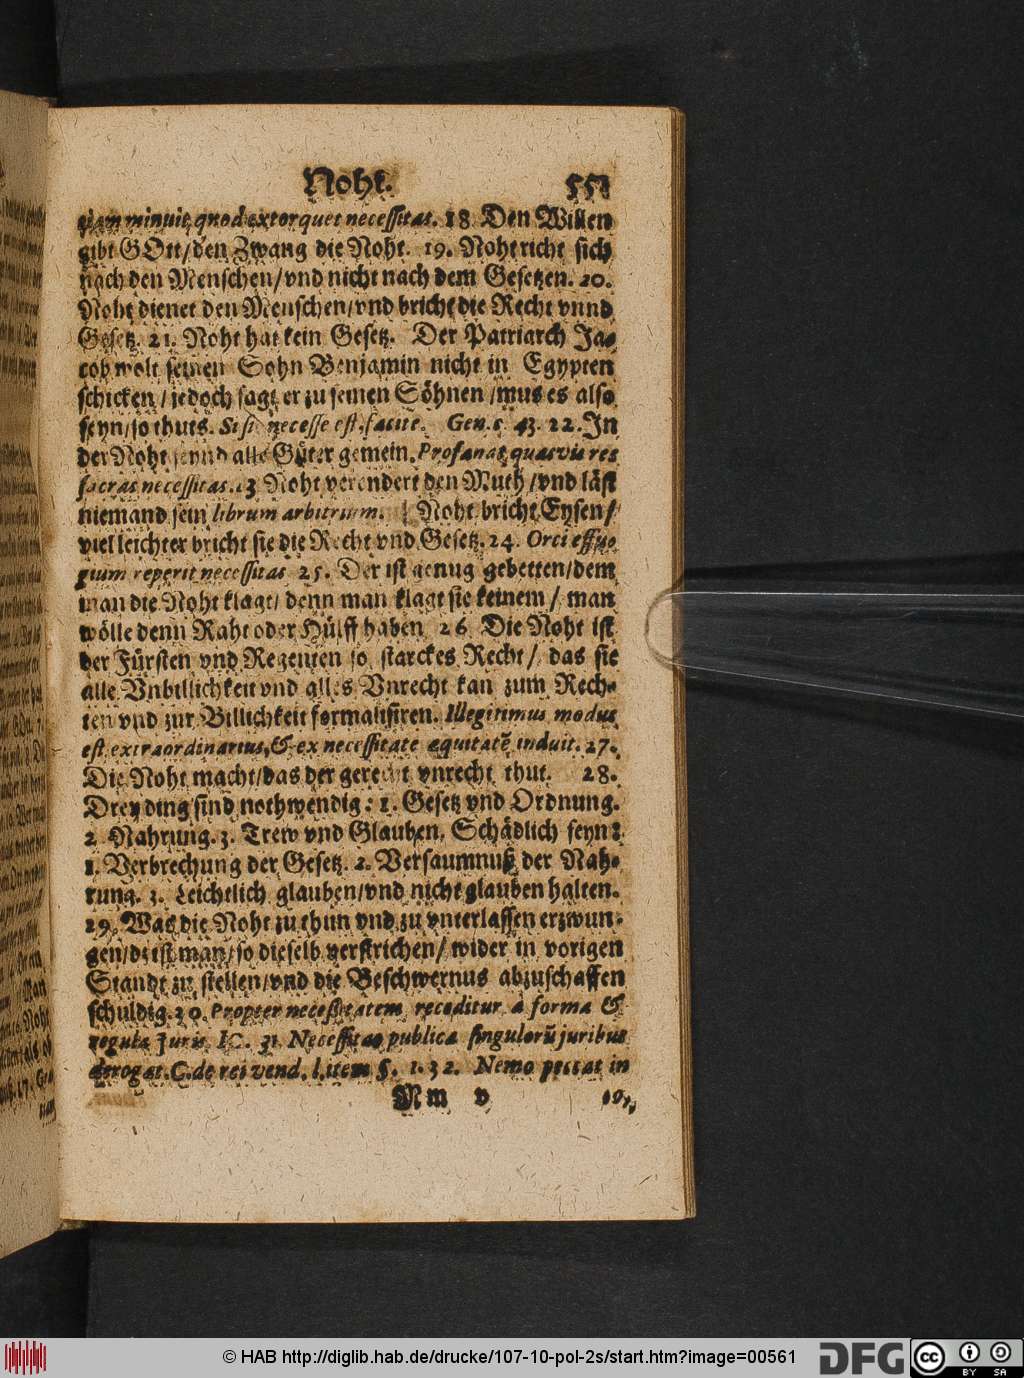 Noht. 553
tiam minuit, quod extorquet necessitas. 18 Den Willen
gibt GOtt/den Zwang die Noht. 19. Noht richt sich
nach den Menschen/vnd nicht nach dem Gesetzen. 20.
Noht dienet den Menschen/vnd bricht die Recht vnnd
Gesetz. 21. Noht hat kein Gesetz. Der Patriarch Ja-
cob wolt seinen Sohn Benjamin nicht in Egypten
schicken/jedoch sagt er zu seinen Söhnen/mus es also
seyn/so thuts. Si sic necesse est, facite. Gen. c. 43. 22. In
der Noht seynd alle Güter gemein. Profanat quasvis res
sacras necessitas. 23 Noht verendert den Muth/vnd läst
niemand sein librum arbitrium. Noht bricht Eysen/
viel leichter bricht sie die Recht vnd Gesetz. 24. Orci effu-
gium reperit necessitas 25. Der ist genug gebetten/dem
man die Noht klagt/denn man klagt sie keinem/man
wölle denn Raht oder Hülff haben 26 Die Noht ist
der Fürsten vnd Regenten so starckes Recht/das sie
alle Vnbillichkeit vnd alles Vnrecht kan zum Rech-
ten vnd zur Billichkeit formalisiren. Illegitimus modus
est extraordinarius, & ex necessitate æquitatē induit. 27.
Die Noht macht/das der gerecht vnrecht thut. 28.
Drey ding sind nothwendig: 1. Gesetz vnd Ordnung.
2 Nahrung. 3. Trew vnd Glauben. Schädlich seyn:
1. Verbrechung der Gesetz. 2. Versaumnuß der Nah-
rung. 3. Leichtlich glauben/vnd nicht glauben halten.
29. Was die Noht zu thun vnd zu vnterlassen erzwun-
gen/dz ist man/so dieselb verstrichen/wider in vorigen
Standt zu stellen/vnd die Beschwernus abzuschaffen
schuldig. 30. Propter necessitatem receditur à forma &
regula Juris. IC. 31 Necessitas publica singulorū juribus
derogat. C. de rei vend. l. item §. 1. 32. Nemo peccat in
Mm v
© HAB http://diglib.hab.de/drucke/107-10-pol-2s/start.htm?image=00561
DFG
cc
BY SA